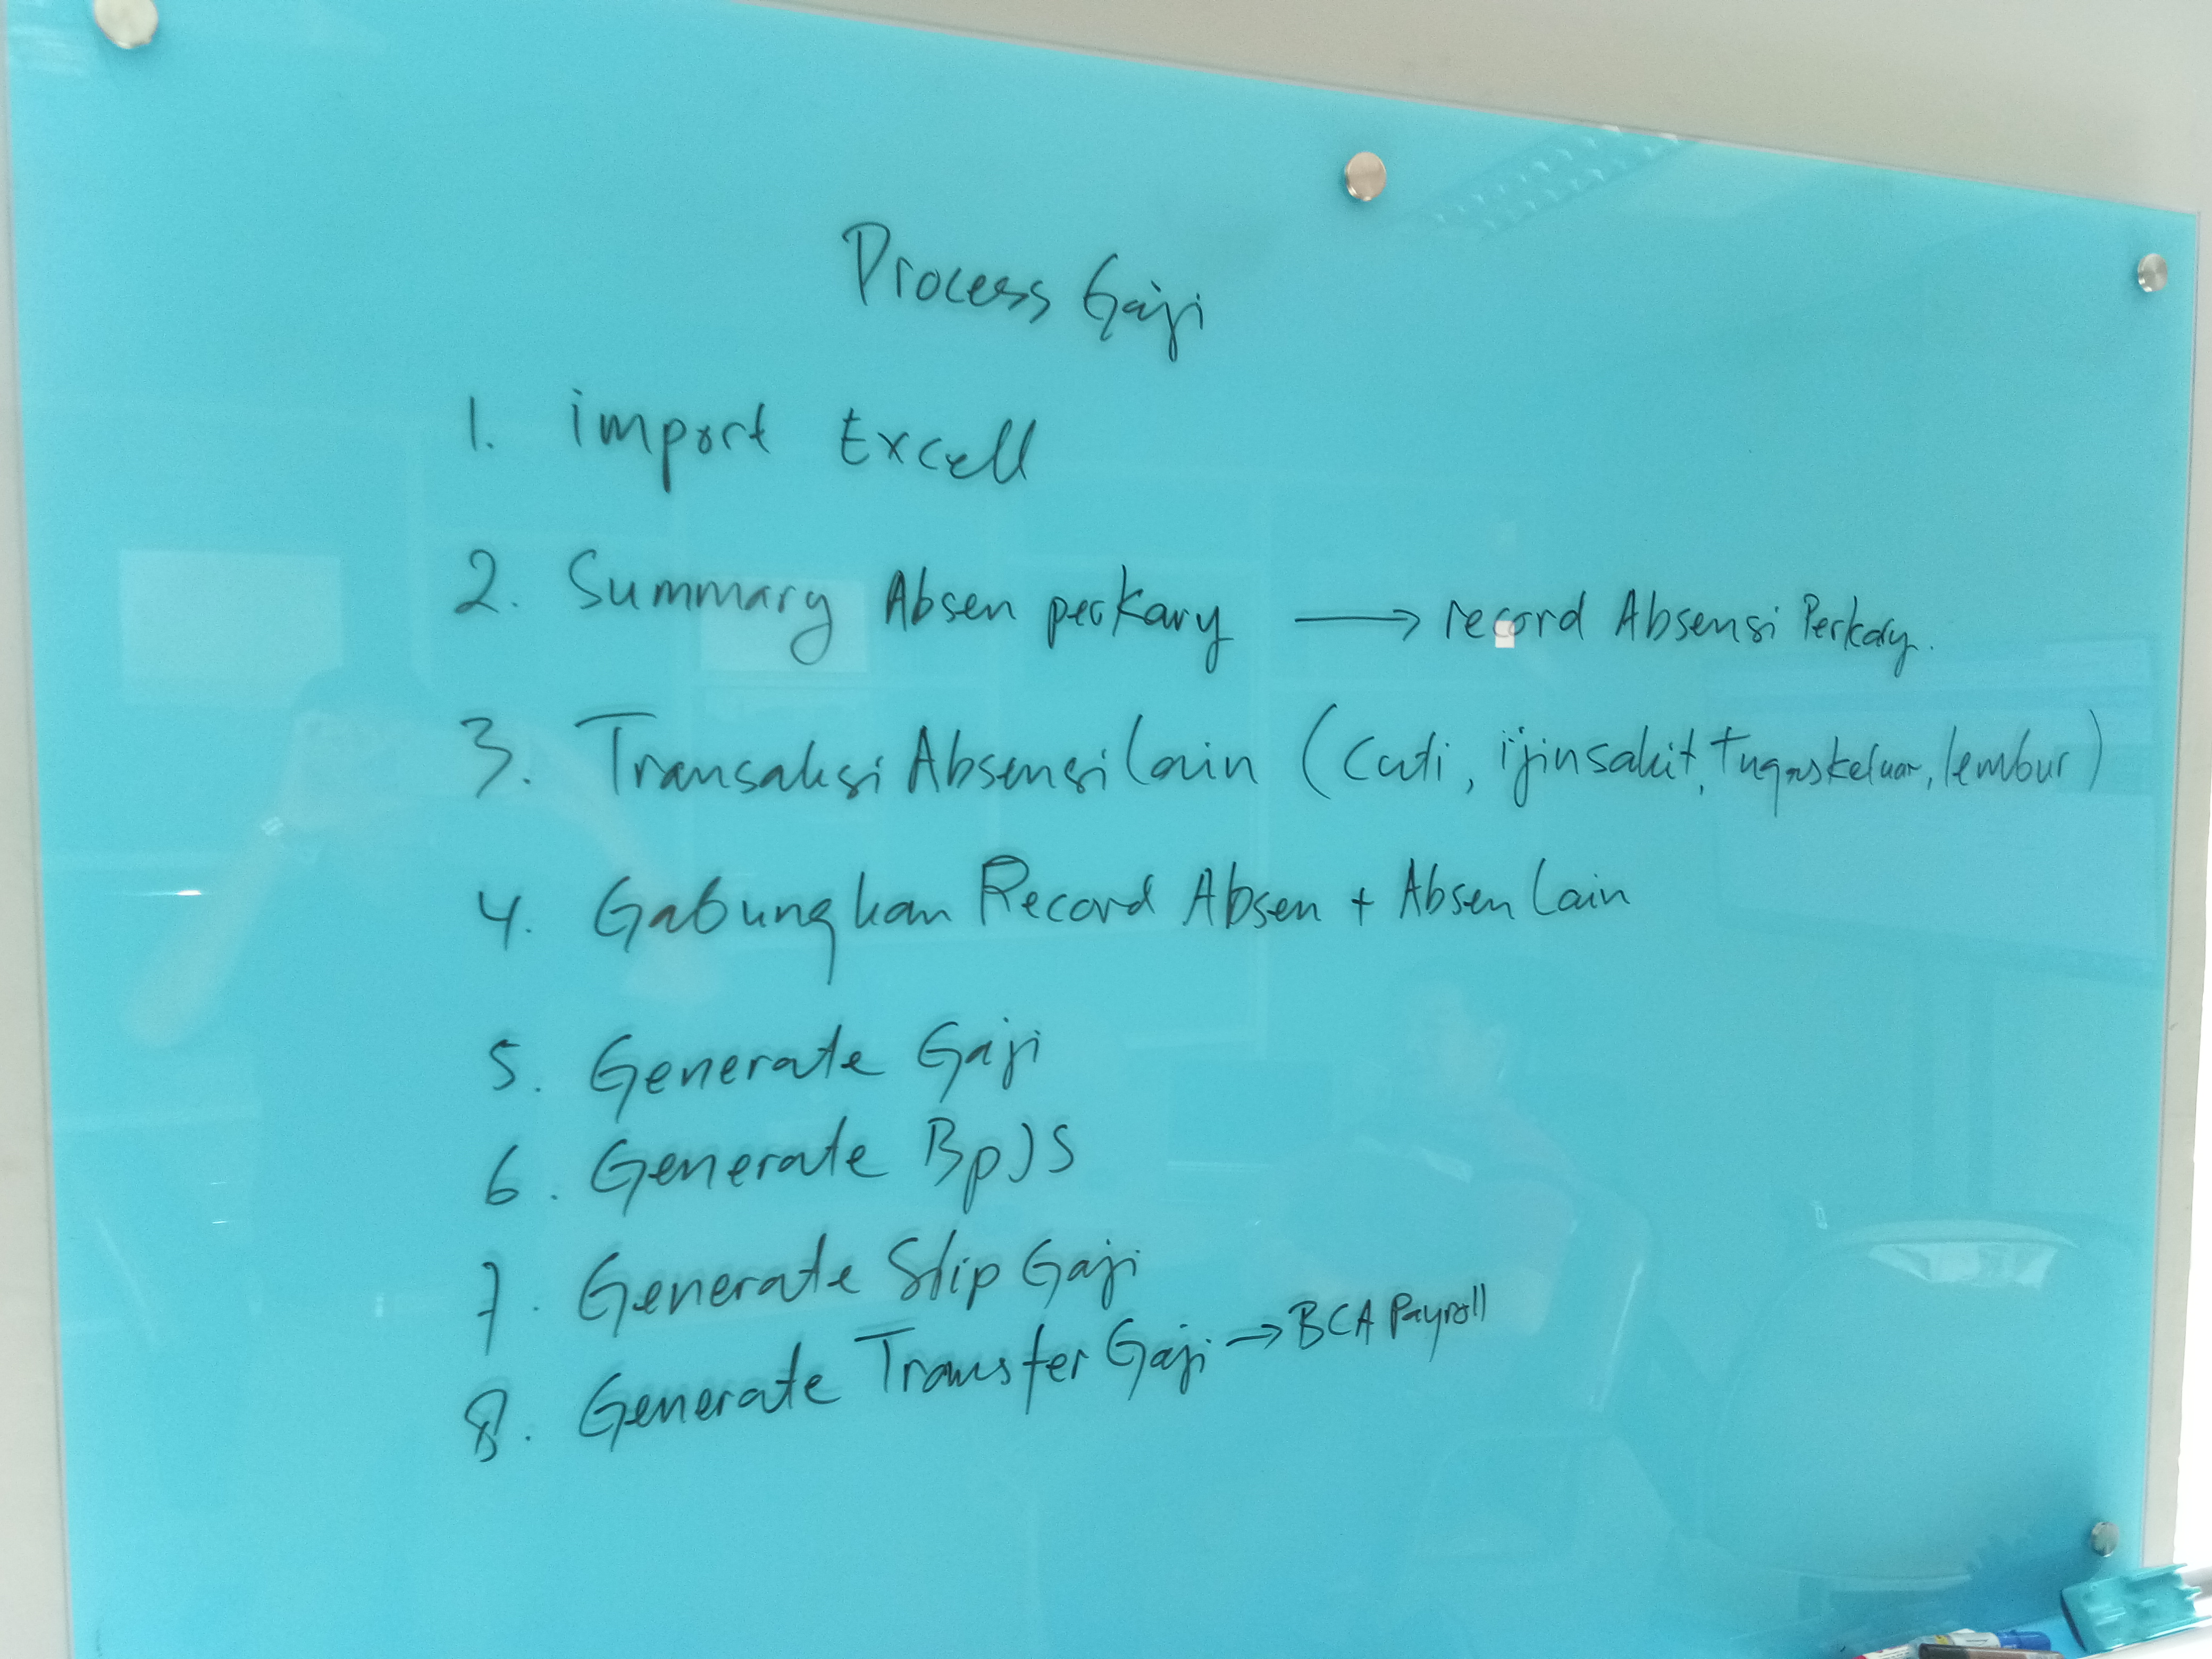 Process Gaji
1. import Excell
2. Summary Absen perkary → record Absensi Perkary.
3. Transaksi Absensi lain (Cuti, ijin sakit, tugas keluar, lembur)
4. Gabungkan Record Absen + Absen lain
5. Generate Gaji
6. Generate BpJS
7. Generate Slip Gaji
8. Generate Transfer Gaji → BCA Payroll